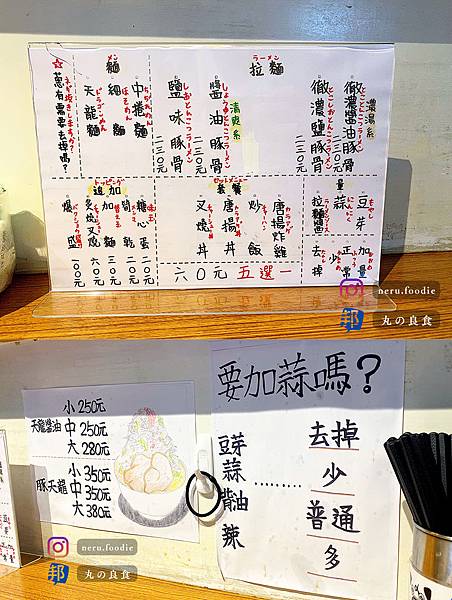 拉麵
ラーメン
濃湯系
徹濃醬油豚骨
二三〇元
徹濃鹽豚骨
二三〇元
清爽系
醬油豚骨
二三〇元
鹽味豚骨
二三〇元
麵
メン
中捲麵
細麵
天龍麵
☆蔥有需要去掉嗎?
量
豆芽
もやし
蒜
にんにく
拉麵醬
加量
正常
少
去掉
套餐
セットメニュー
唐揚炸雞
炒飯
唐揚丼
叉燒丼
六〇元 五選一
追加
トッピング
糖心蛋 二〇元
筍乾 二〇元
麵 三〇元
炙燒叉燒 六〇元
爆盛 一〇〇元
neru.foodie
丸の良食
天龍醬油
小 250元
中 250元
大 280元
豚天龍
小 350元
中 350元
大 380元
要加蒜嗎?
豆芽
蒜
背油
辣
去掉
少
普通
多
neru.foodie
丸の良食